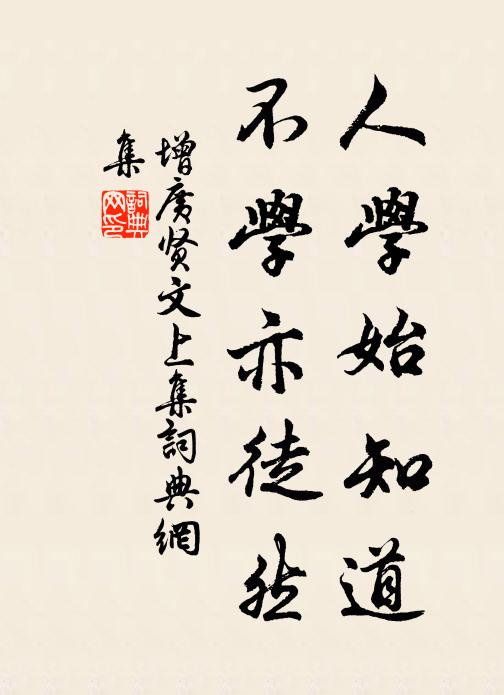 人學始知道
不學亦徒然
增廣贤文上集詞典網
集
詞典
网印